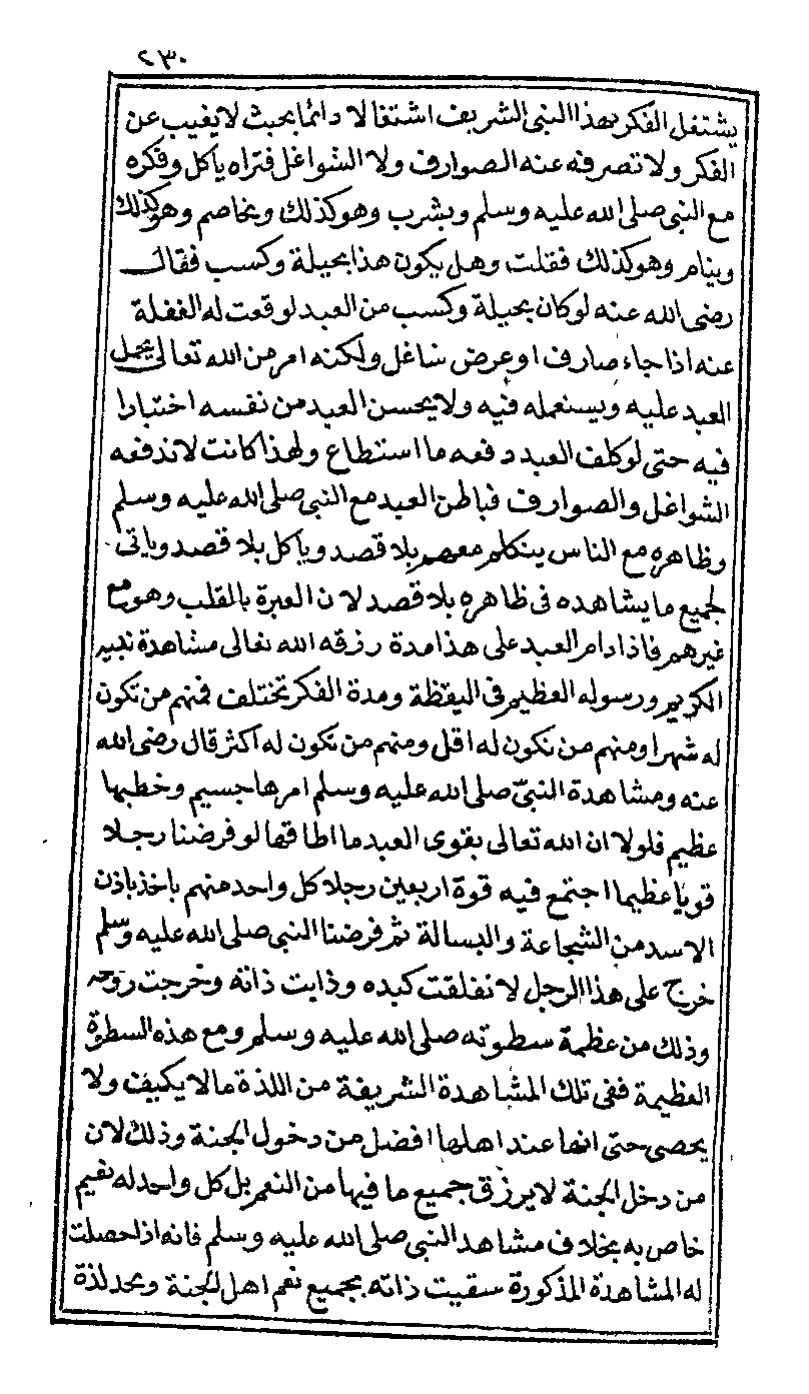 ٢٣٠
يشتغل الفكر بهذا النبي الشريف اشتغالا دائما بحيث لا يغيب عن
الفكر ولا تصرفه عنه الصوارف ولا الشواغل فتراه ياكل وفكره
مع النبي صلى الله عليه وسلم ويشرب وهو كذلك ويخاصم وهو كذلك
وينام وهو كذلك فقلت وهل يكون هذا بحيلة وكسب فقال
رضى الله عنه لو كان بحيلة وكسب من العبد لوقعت له الغفلة
عنه اذا جاء صارف او عرض شاغل ولكنه امر من الله تعالى يحمل
العبد عليه ويستعمله فيه ولا يحسن العبد من نفسه اختيارا
فيه حتى لو كلف العبد دفعه ما استطاع ولهذا كانت لا تدفعه
الشواغل والصوارف فباطن العبد مع النبي صلى الله عليه وسلم
وظاهره مع الناس يتكلم معهم بلا قصد وياكل بلا قصد وياتى
لجميع ما يشاهده فى ظاهره بلا قصد لان العبرة بالقلب وهو مع
غيرهم فاذا دام العبد على هذا مدة رزقه الله تعالى مشاهدة نبيه
الكريم ورسوله العظيم فى اليقظة ومدة الفكر تختلف فمنهم من تكون
له شهرا ومنهم من تكون له اقل ومنهم من تكون له اكثر قال رضى الله
عنه ومشاهدة النبيّ صلى الله عليه وسلم امرها جسيم وخطبها
عظيم فلولا ان الله تعالى يقوى العبد ما اطاقها لو فرضنا رجلا
قويا عظيما اجتمع فيه قوة اربعين رجلا كل واحد منهم ياخذ باذن
الاسد من الشجاعة والبسالة ثم فرضنا النبي صلى الله عليه وسلم
خرج على هذا الرجل لانفلقت كبده وذابت ذاته وخرجت روحه
وذلك من عظمة سطوته صلى الله عليه وسلم ومع هذه السطوة
العظيمة ففى تلك المشاهدة الشريفة من اللذة ما لا يكيف ولا
يحصى حتى انها عند اهلها افضل من دخول الجنة وذلك لان
من دخل الجنة لا يرزق جميع ما فيها من النعم بل كل واحد له نعيم
خاص به بخلاف مشاهد النبي صلى الله عليه وسلم فانه اذا حصلت
له المشاهدة المذكورة سقيت ذاته بجميع نعم اهل الجنة ويجد لذة